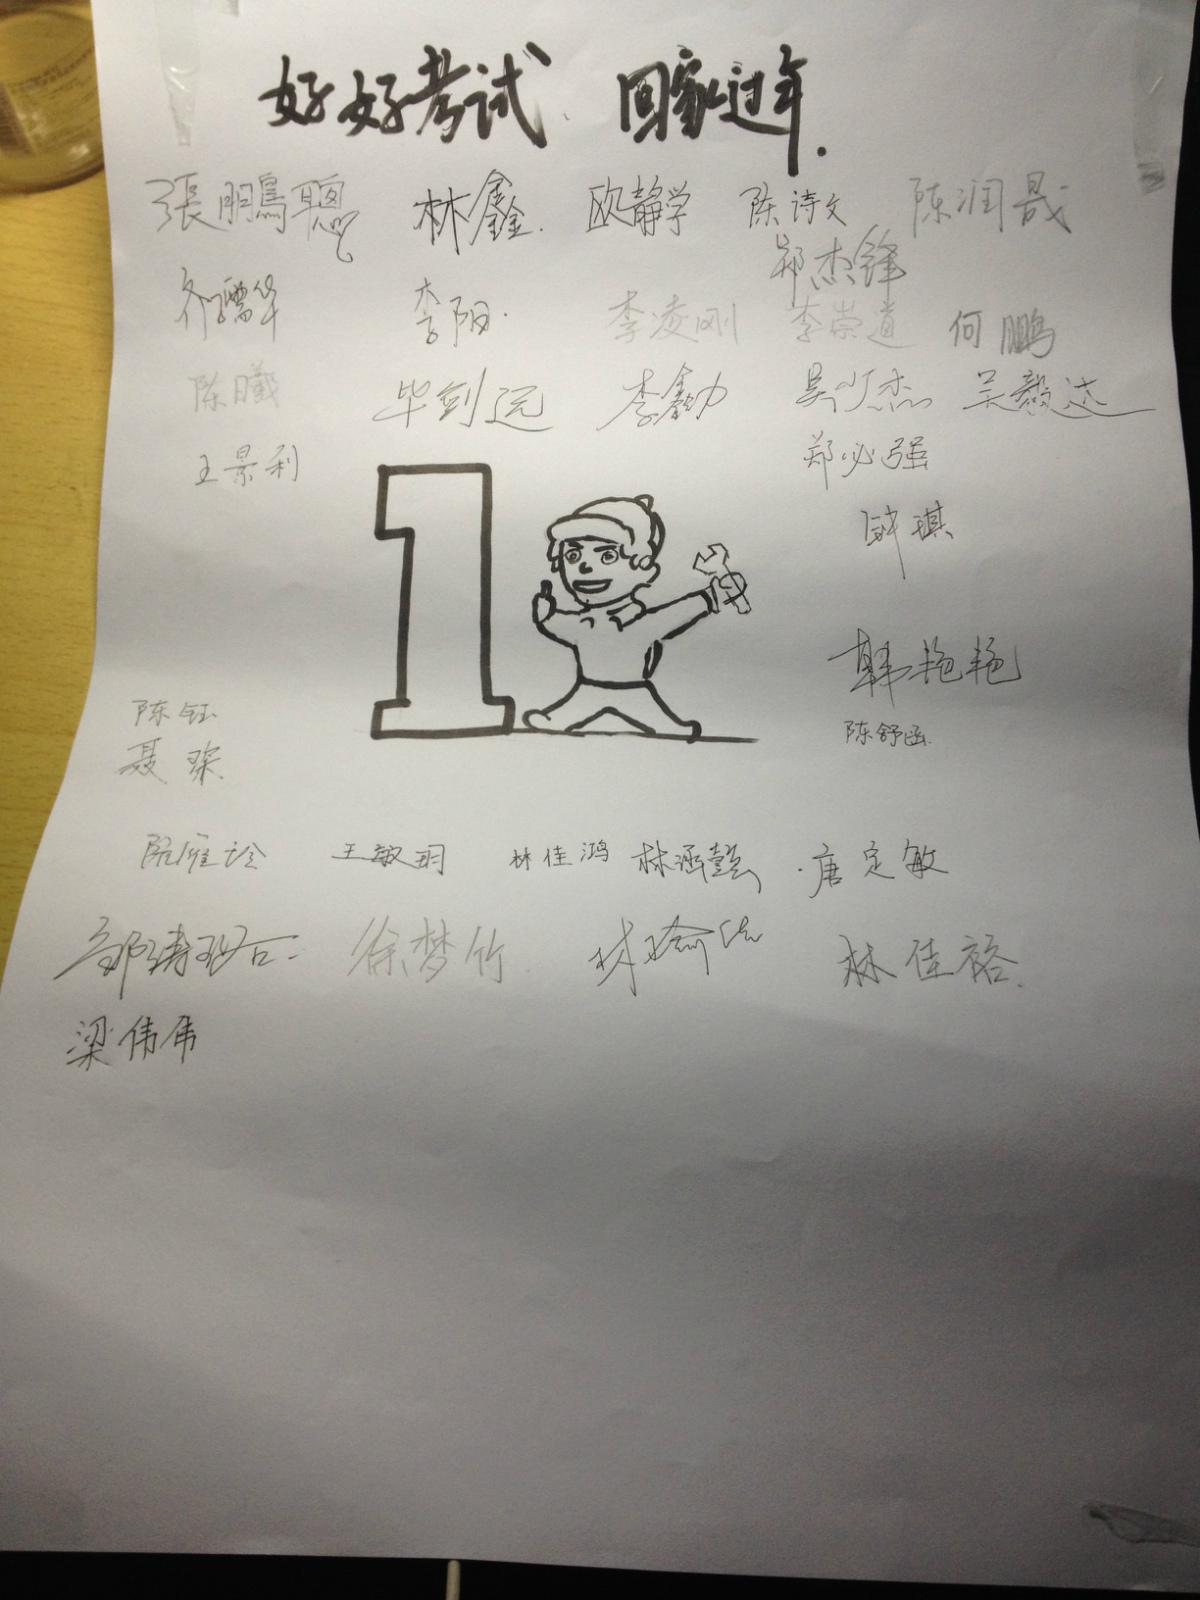 好好考试 回家过年.
張鵬聰 林鑫. 欧静学 陈诗文 陈润晟
郑杰锋
李阳. 李凌刚 李崇道 何鹏
陈曦 毕剑远 李勳 吴毅达
王景利 郑必强
1
钟琪
韩艳艳
陈钰 陈舒函
聂琛
王敏玥 林佳鸿 林涵懿 唐定敏
徐梦竹 林佳裕.
梁伟伟